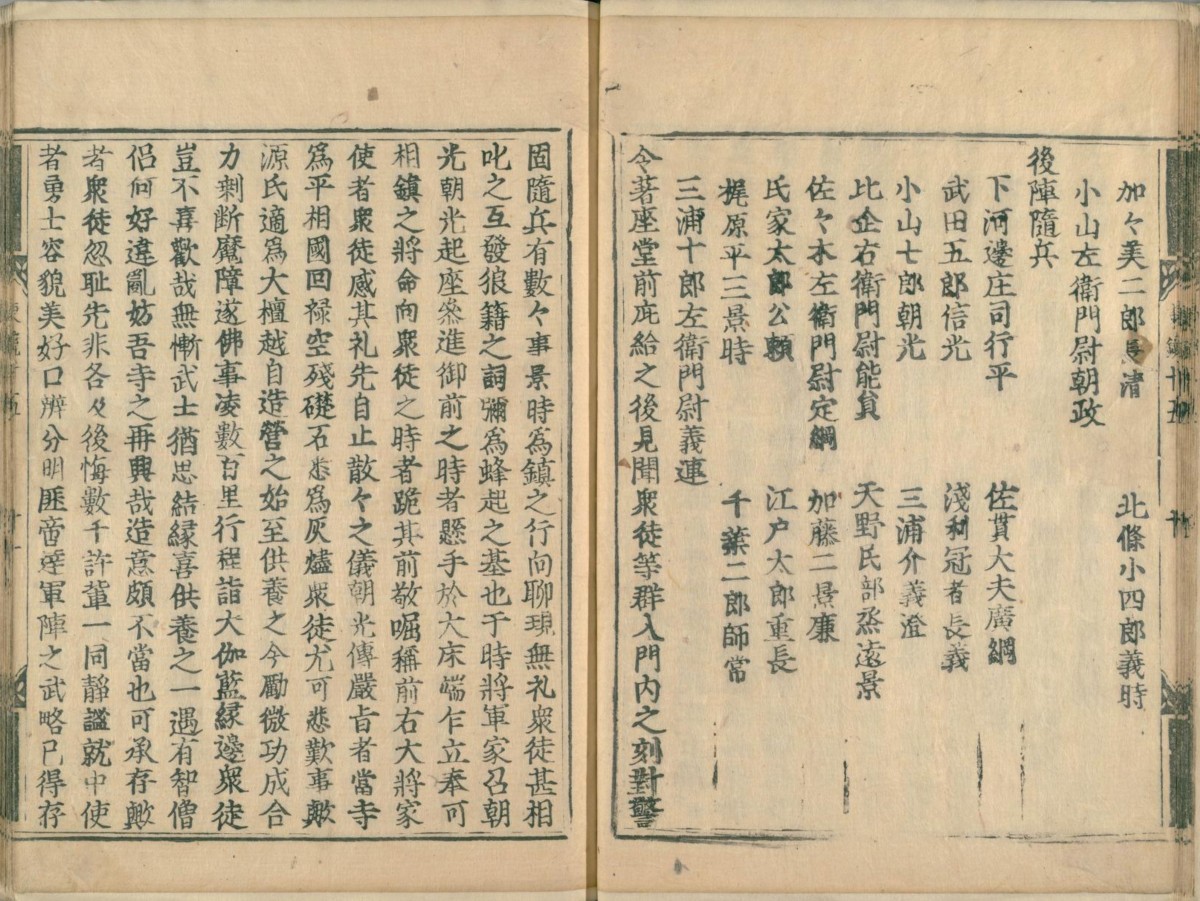 加々美二郎長清　北條小四郎義時
小山左衛門尉朝政
後陣隨兵
下河邊庄司行平　佐貫大夫廣綱
武田五郎信光　淺利冠者長義
小山七郎朝光　三浦介義澄
比企右衛門尉能員　天野民部丞遠景
佐々木左衛門尉定綱　加藤二景廉
氏家太郎公賴　江戸太郎重長
梶原平三景時　千葉二郎師常
三浦十郎左衛門尉義連
令著座堂前庇給之後見聞衆徒等群入門内之刻對警
固隨兵有數々事景時爲鎮之行向聊現無礼衆徒甚相
叱之互發狼籍之詞彌爲蜂起之基也于時將軍家召朝
光朝光起座參進御前之時者懸手於大床端乍立奉可
相鎮之將命向衆徒之時者跪其前敬崛稱前右大將家
使者衆徒感其礼先自止散々之儀朝光傳嚴旨者當寺
爲平相國回禄空殘礎石悉爲灰燼衆徒尤可悲歎事歟
源氏適爲大檀越自造營之始至供養之今勵微功成合
力剩断魔障遂佛事凌數百里行程詣大伽藍縁邊衆徒
豈不喜歡哉無慚武士猶思結縁喜供養之一遇有智僧
侶何好違亂妨吾寺之再興哉造意頗不當也可承存歟
者衆徒忽耻先非各及後悔數千許輩一同靜謐就中使
者勇士容貌美好口辨分明匪啻達軍陣之武略已得存